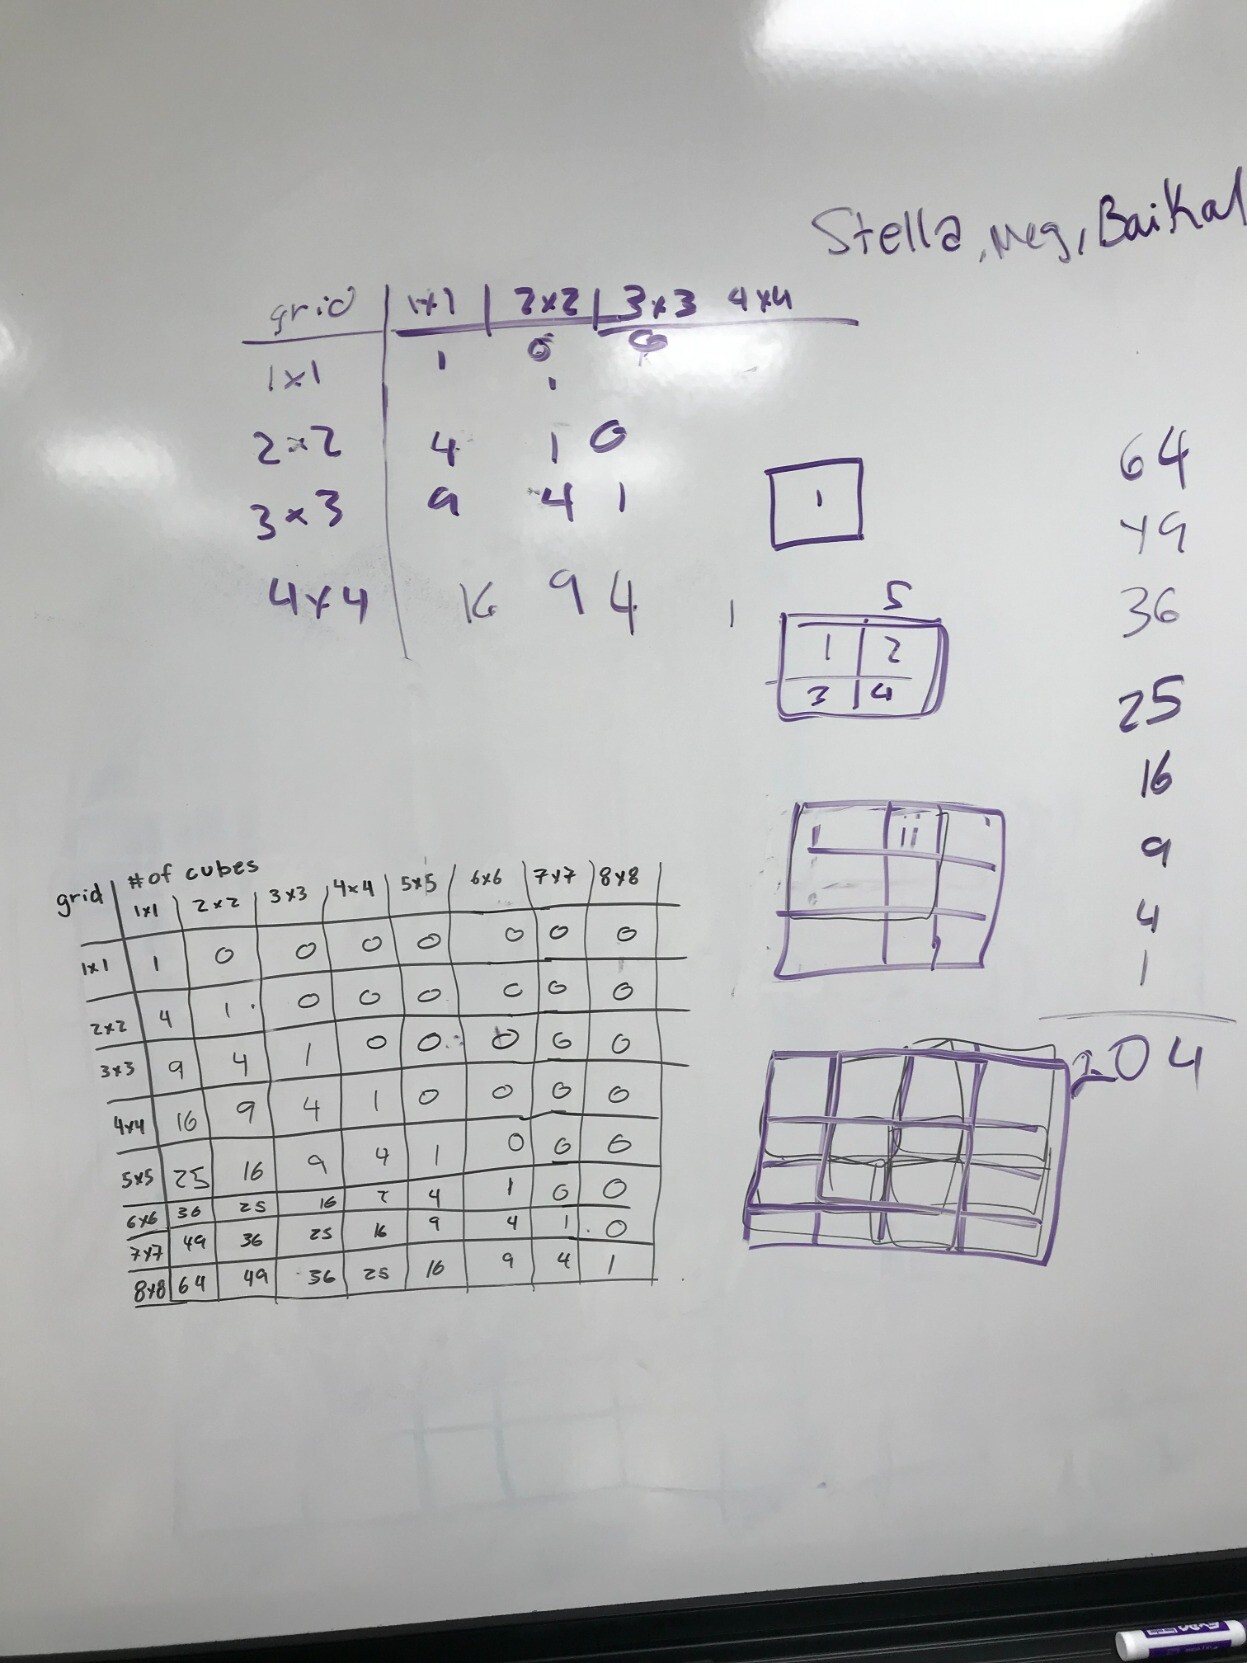 Stella, Meg, Baikal
grid 1x1 2x2 3x3 4x4
1x1 1 0 0
2x2 4 1 0
3x3 9 4 1
4x4 16 9 4 1
1
5
1 2
3 4
64
49
36
25
16
9
4
1
204
# of cubes
grid 1x1 2x2 3x3 4x4 5x5 6x6 7x7 8x8
1x1 1 0 0 0 0 0 0 0
2x2 4 1 0 0 0 0 0 0
3x3 9 4 1 0 0 0 0 0
4x4 16 9 4 1 0 0 0 0
5x5 25 16 9 4 1 0 0 0
6x6 36 25 16 4 1 0 0
7x7 49 36 25 16 9 4 1 0
8x8 64 49 36 25 16 9 4 1